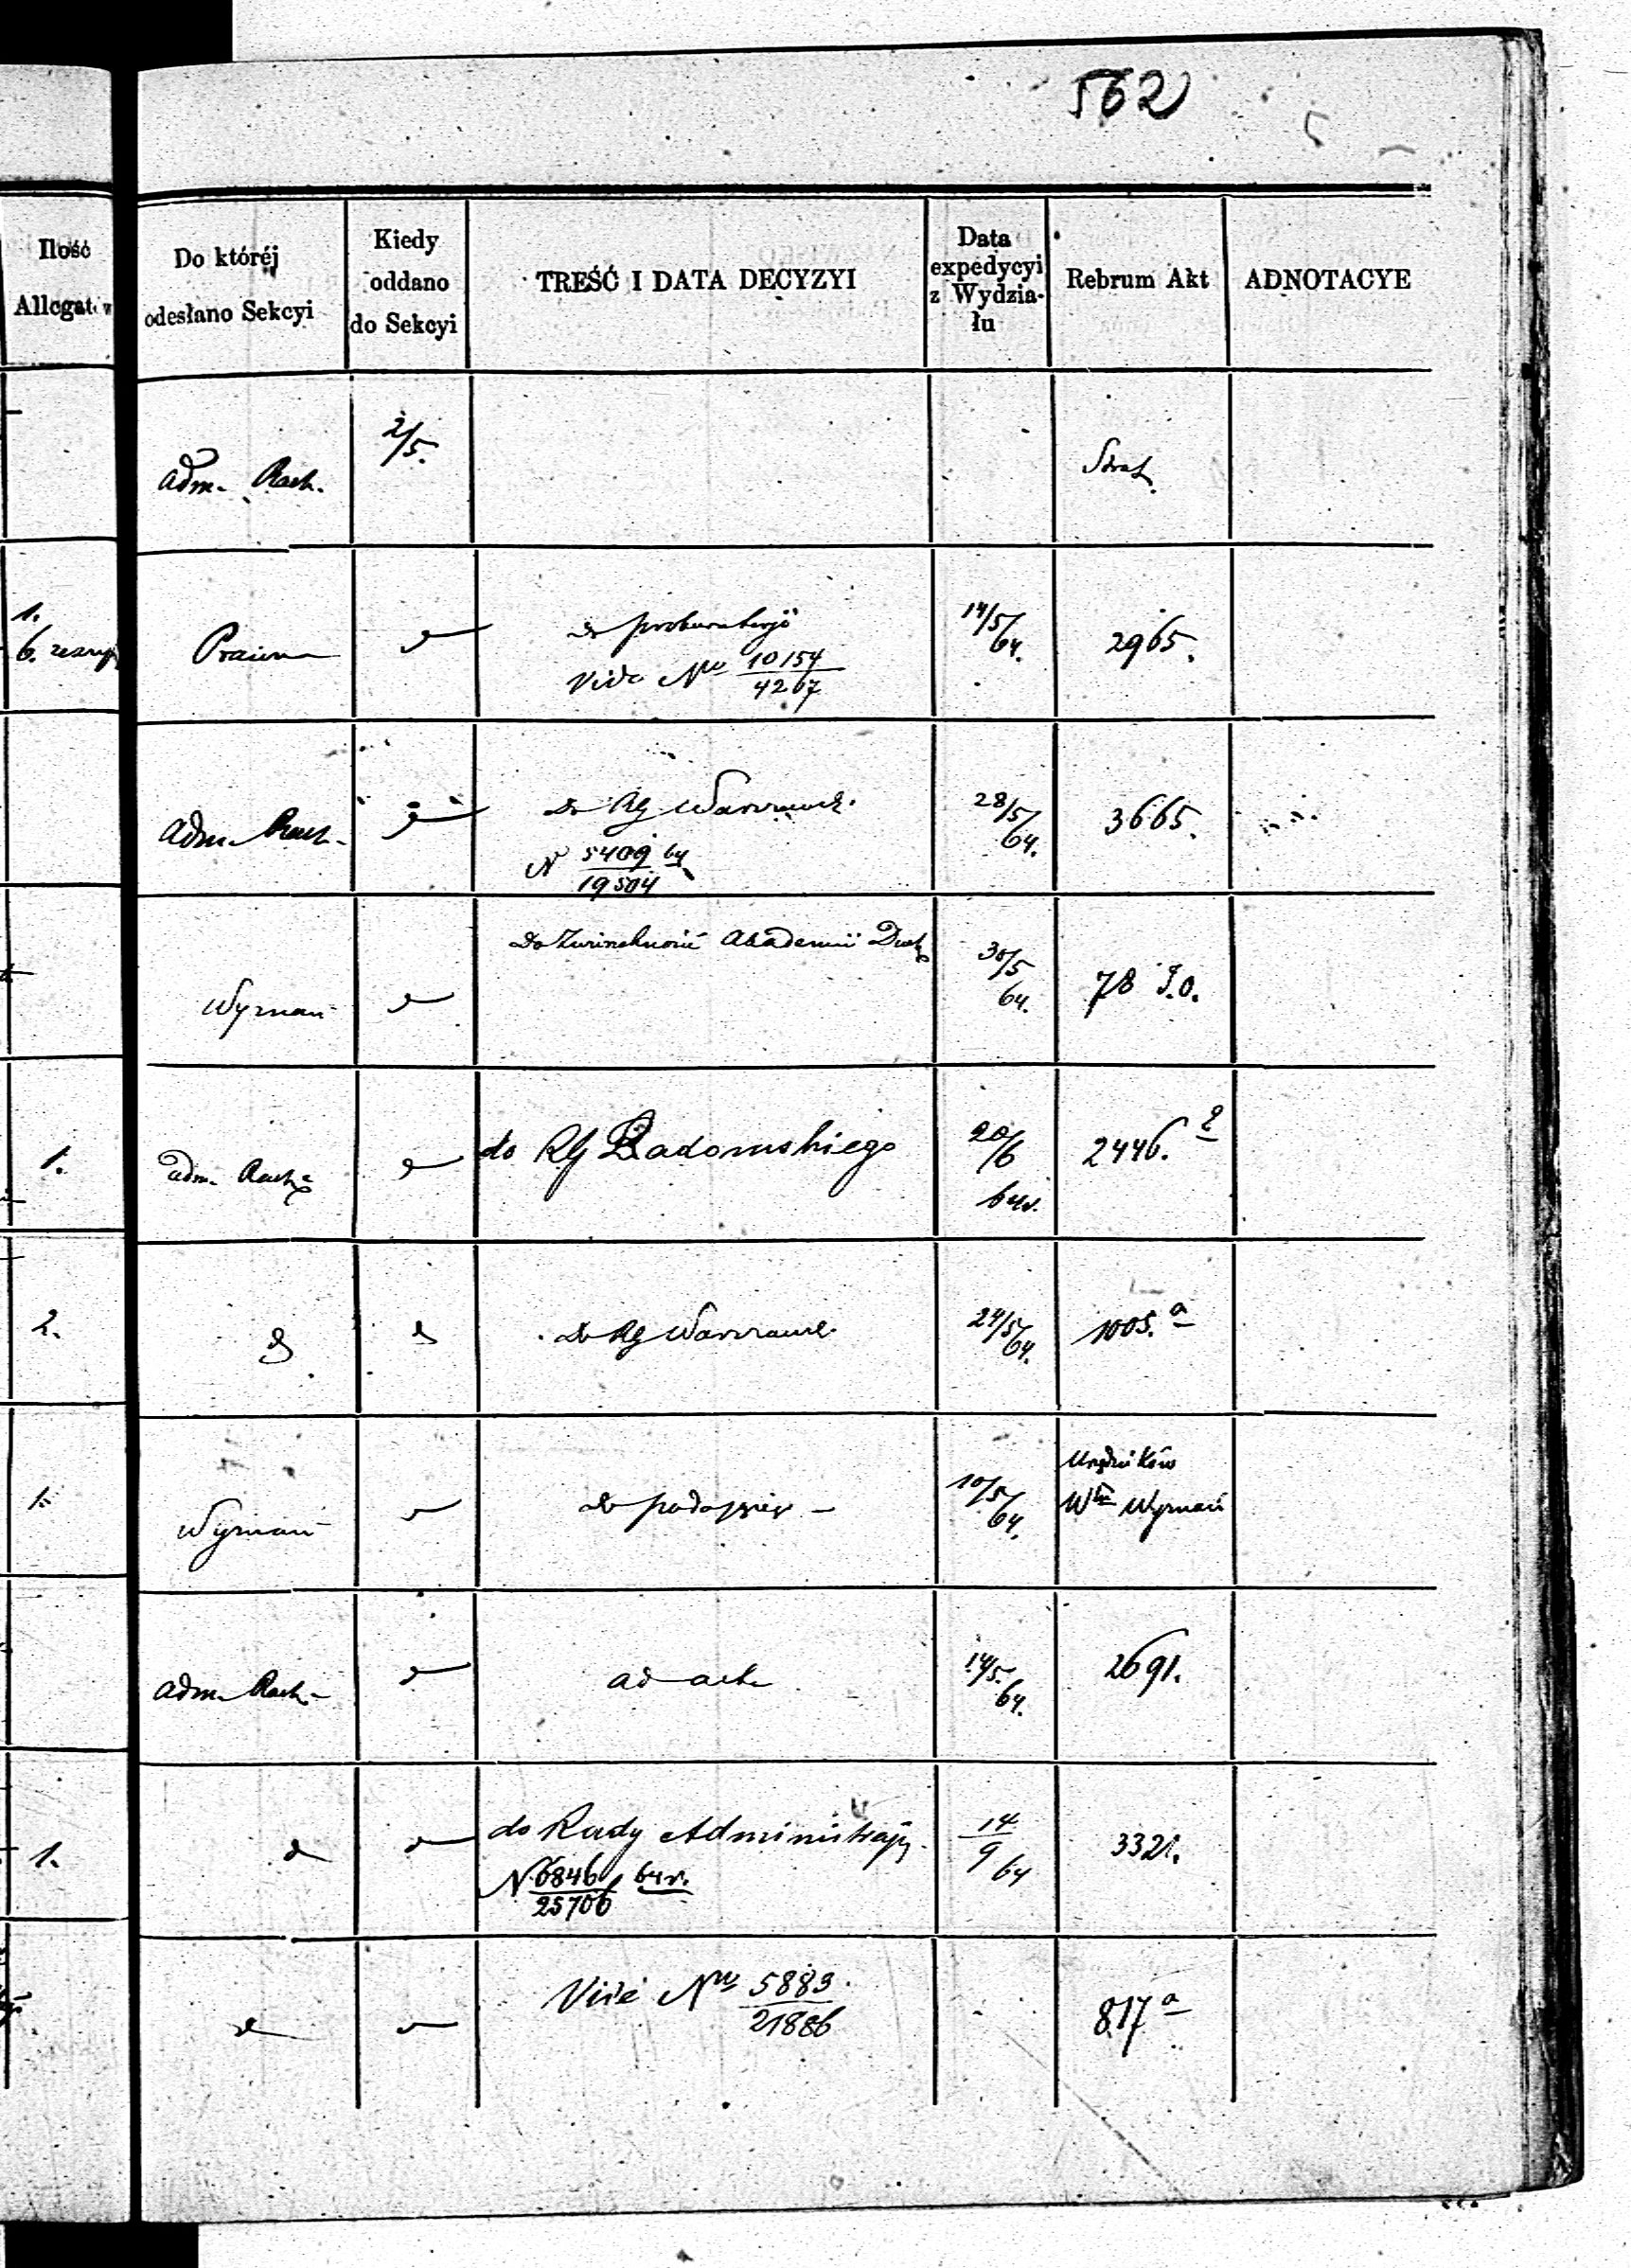 562
Ilość
Allegatów
Do któréj
odesłano Sekcyi
Kiedy
oddano
do Sekcyi
TREŚĆ I DATA DECYZYI
Data
expedycyi
z Wydzia-
łu
Rebrum Akt
ADNOTACYE
Adm. Rach.
2/5.
Strat
1.
6.
Prawna
do prokuratoryi
Vide Nro 10154
4267
14/5
64.
2965.
Adm. Rach.
do RG Warszawsk.
N 5409 64
19504
28/5
64.
3665.
Wyznań
do Zwierzchności Akademii Duch
30/5
64.
78 J.O.
1.
Adm. Rach.
do RG Radomskiego
20/6
64r.
2446.
2.
do RG Warszawsk.
24/5
64.
1005. a
1.
Wyznań
do podpisu
10/5
64.
Urzędników
Wła Wyznań
Adm. Rach.
ad acta
14/5.
64.
2691.
1.
do Rady Administracyj.
N 6846 64r.
25706
14
9 64
3321.
Vide Nro 5883.
21886
817 a